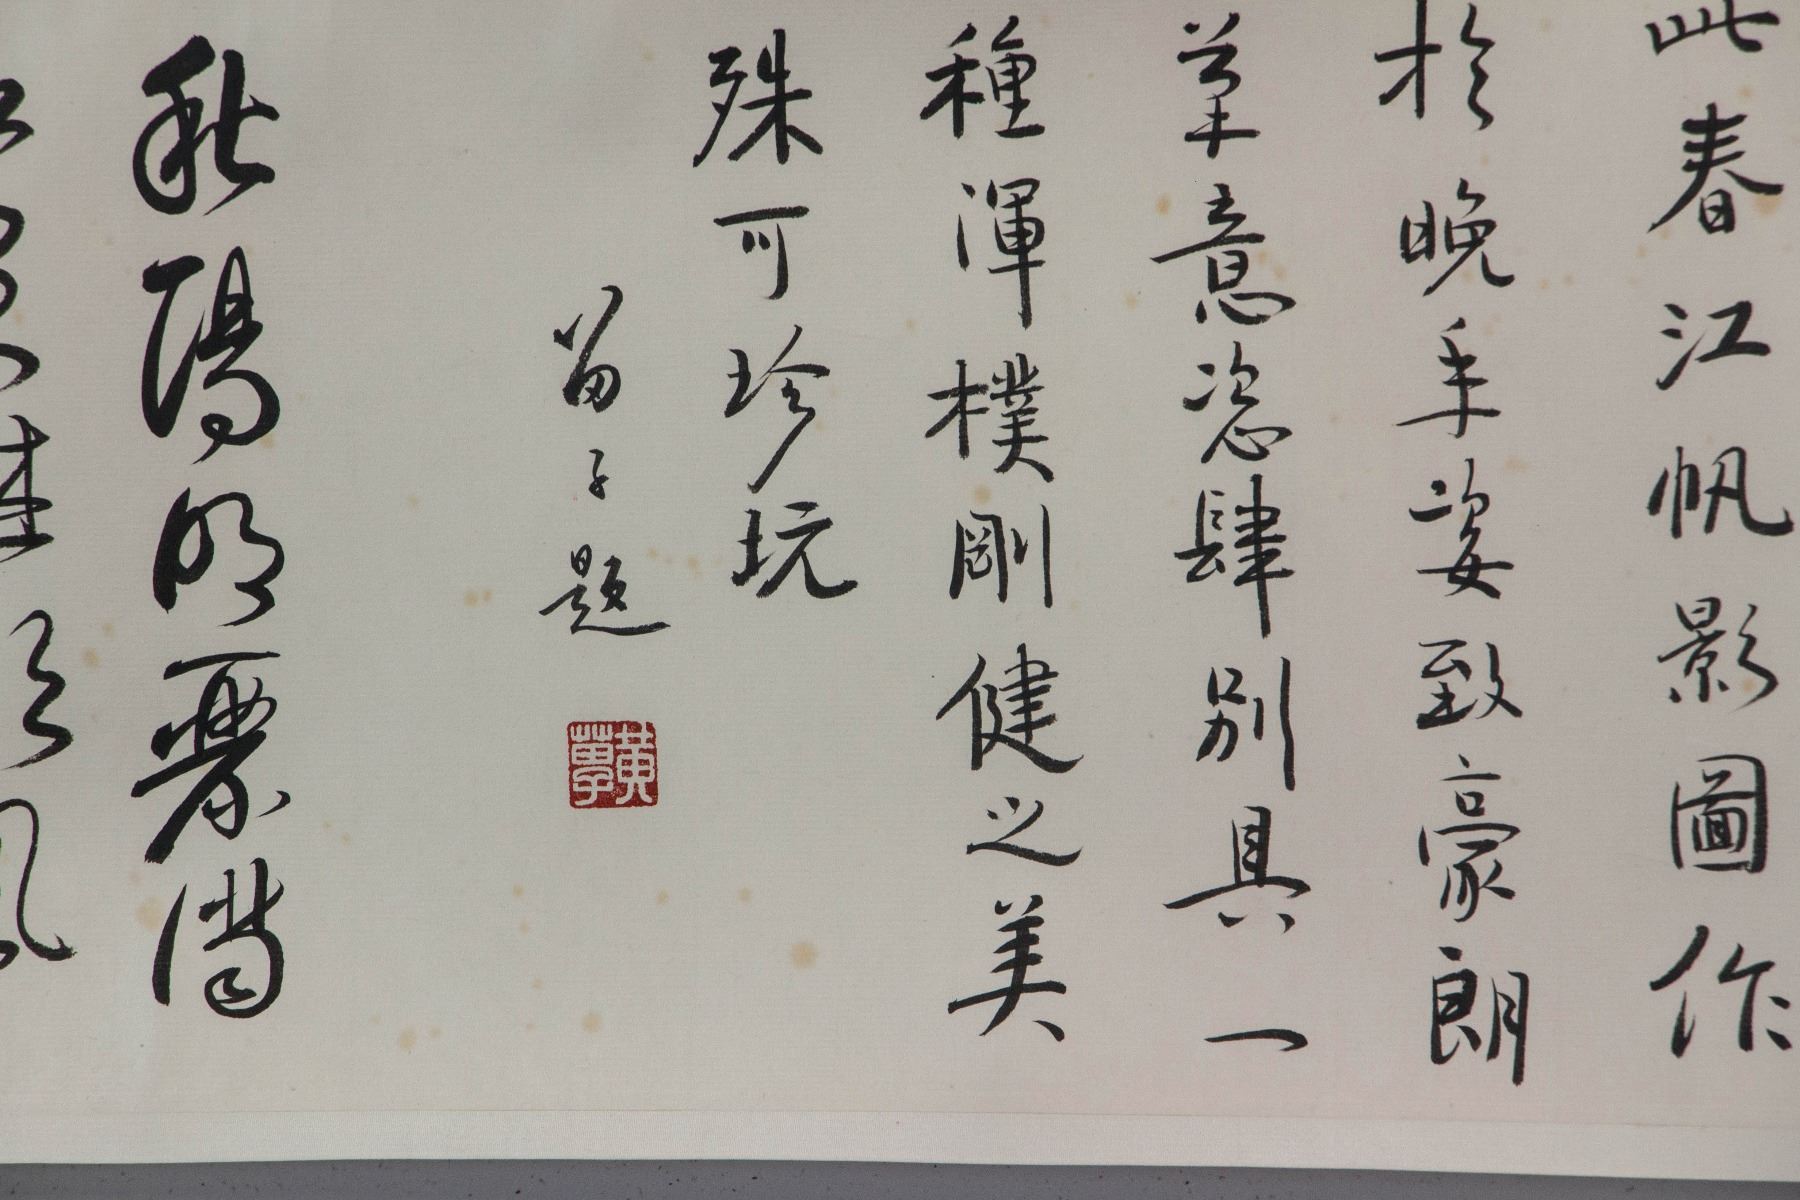 此春江帆影圖作
於晚年姿致豪朗
草意恣肆別具一
種渾樸剛健之美
殊可珍玩
苗子題
黃苗子
秋陽明麗